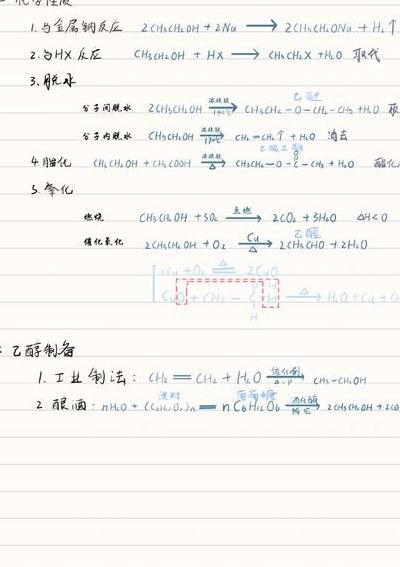 化学性质
1. 与金属钠反应 2CH₃CH₂OH + 2Na ⟶ 2CH₃CH₂ONa + H₂↑
2. 与HX反应 CH₃CH₂OH + HX ⟶ CH₃CH₂X + H₂O 取代
3. 脱水
乙醚
分子间脱水 2CH₃CH₂OH 浓硫酸 140℃ ⟶ CH₃CH₂-O-CH₂-CH₃ + H₂O 取
分子内脱水 CH₃CH₂OH 浓硫酸 170℃ ⟶ CH₂=CH₂↑ + H₂O 消去
乙酸乙酯
4. 酯化 CH₃CH₂OH + CH₃COOH 浓硫酸 △ ⟶ CH₃CH₂-O-C(=O)-CH₃ + H₂O 酯化
5. 氧化
燃烧 CH₃CH₂OH + 3O₂ 点燃 ⟶ 2CO₂ + 3H₂O △H<0
乙醛
催化氧化 2CH₃CH₂OH + O₂ Cu △ ⟶ 2CH₃CHO + 2H₂O
2Cu + O₂ △ = 2CuO
CuO + CH₃-C-H △ ⟶ H₂O + Cu + CH
H
乙醇制备
1. 工业制法: CH₂=CH₂ + H₂O 催化剂 △·P ⟶ CH₃-CH₂OH
淀粉 葡萄糖
2 酿酒: nH₂O + (C₆H₁₀O₅)ₙ = nC₆H₁₂O₆ 酒化酶 ⟶ 2CH₃CH₂OH + 2CO